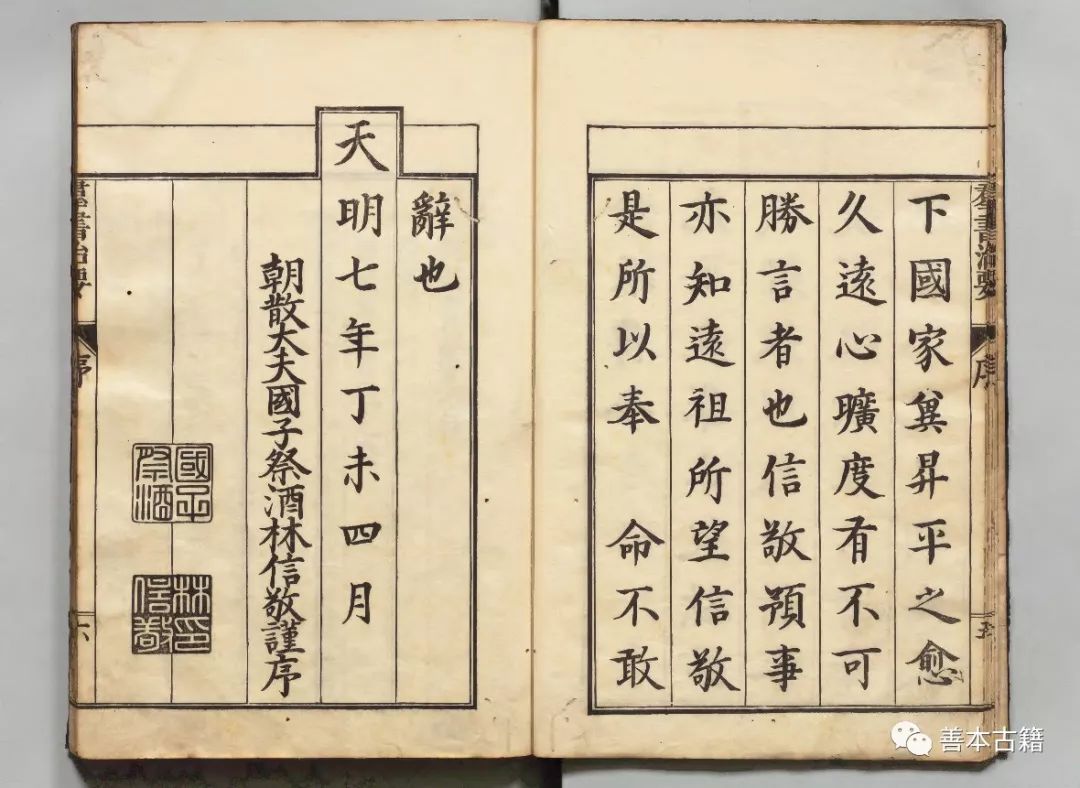 下國家冀昇平之愈
久遠心曠度有不可
勝言者也信敬預事
亦知遠祖所望信敬
是所以奉　命不敢
辭也
天明七年丁未四月
朝散大夫國子祭酒林信敬謹序
國子祭酒
林信敬印
群書治要
序
五
群書治要
序
六
善本古籍